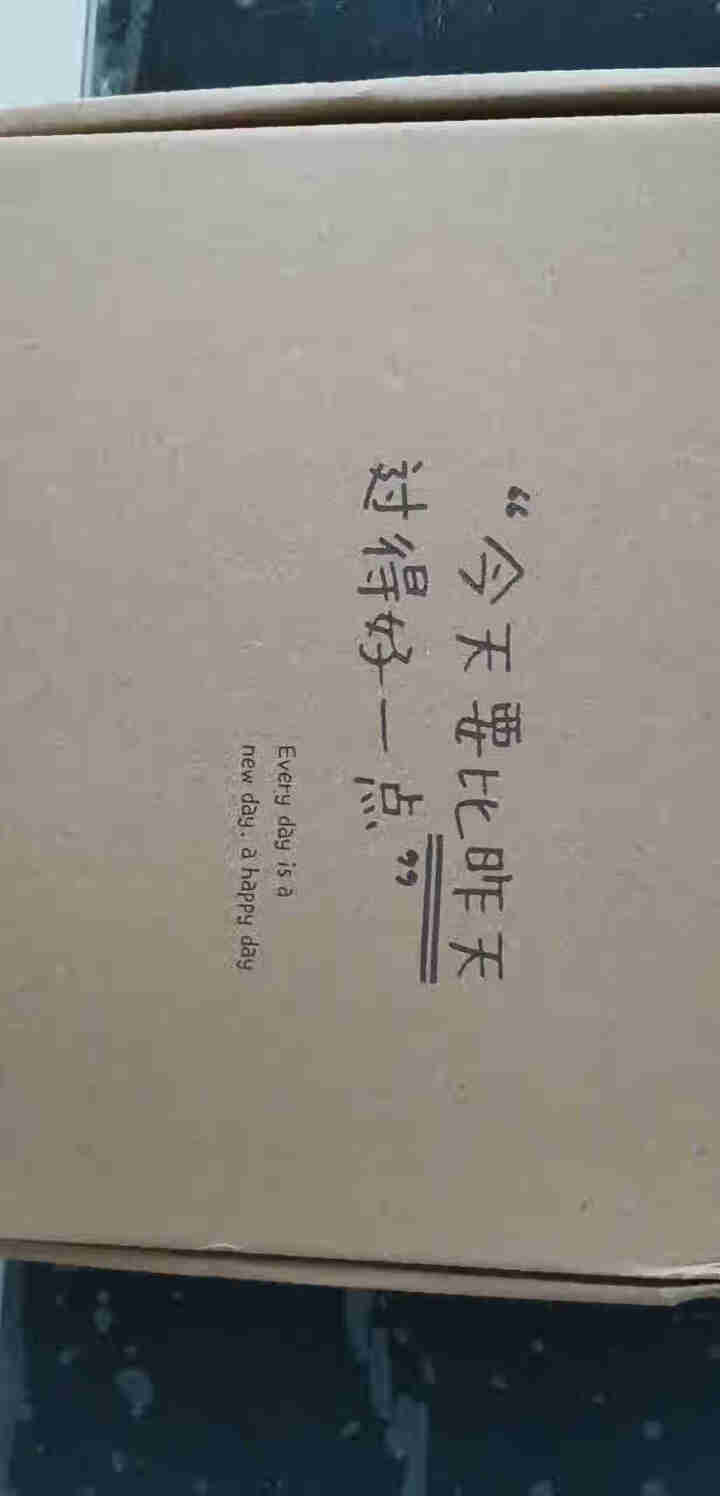 “今天要比昨天
过得好一点”
Every day is a
new day. a happy day